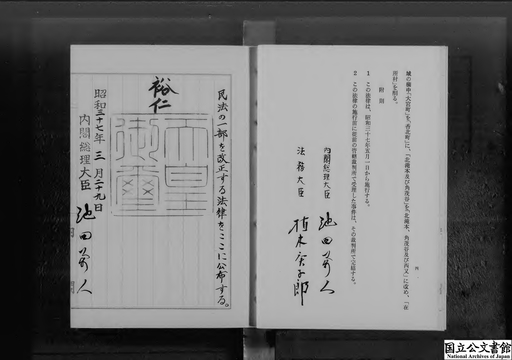 域の欄中「大宮町」を「西北町」に、「北蔵本及び角茂谷」を「北蔵本、角茂谷及び西又」に改め、「在
所村」を削る。
附則
1 この法律は、昭和三十七年五月一日から施行する。
2 この法律の施行前に従前の管轄裁判所で受理した事件は、その裁判所で完結する。
内閣総理大臣 池田勇人
法務大臣 植木庚子郎
民法の一部を改正する法律をここに公布する。
裕仁
天皇御璽
昭和三十七年三月二十九日
内閣総理大臣 池田勇人
国立公文書館
National Archives of Japan